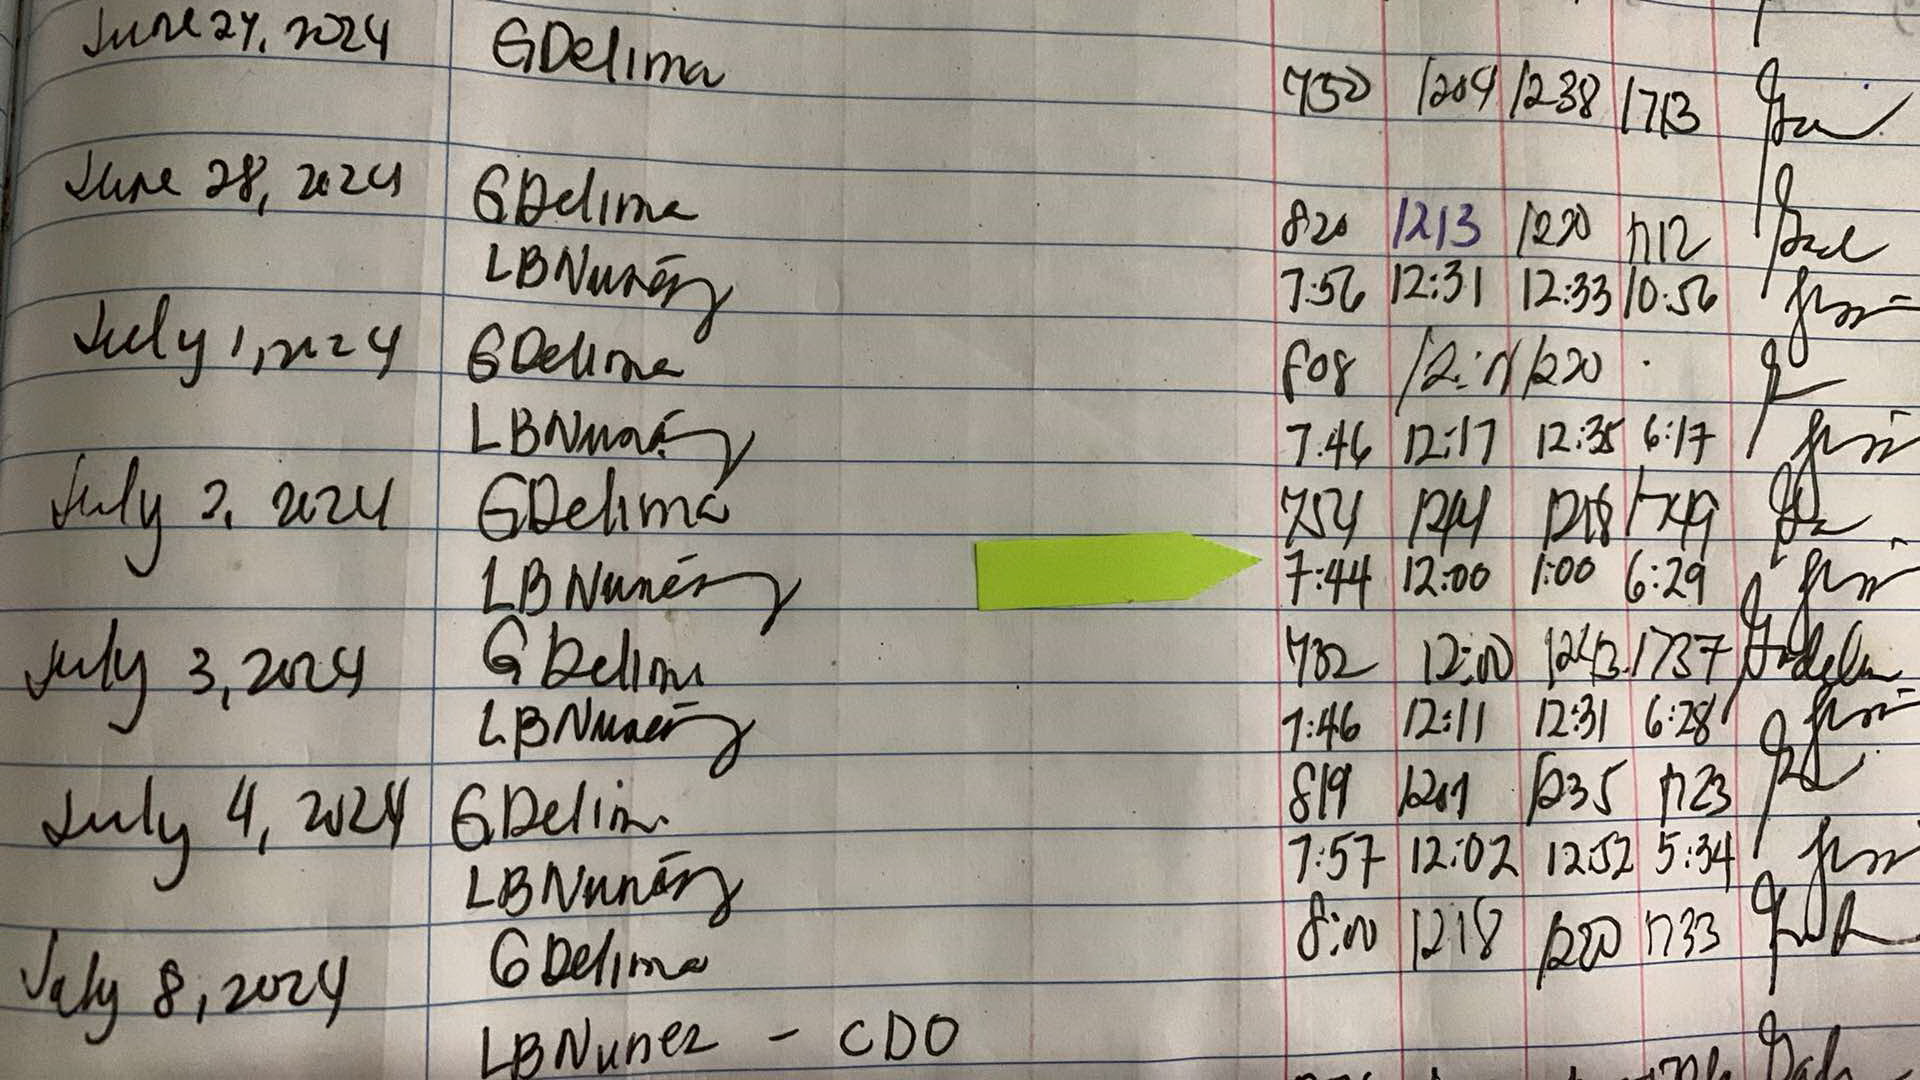 June 27, 2024 GDelima 750 1204 1238 1713
June 28, 2024 GDelima 820 1213 1220 1712
LBNuñez 7:56 12:31 12:33 10:56
July 1, 2024 GDelima 808 1220
LBNuñez 7:46 12:17 12:35 6:17
July 2, 2024 GDelima 754 1749
LBNuñez 7:44 12:00 1:00 6:29
July 3, 2024 GDelima 732 12:00 1243 1737
LBNuñez 7:46 12:11 12:31 6:28
July 4, 2024 GDelim 819 1201 1235 1723
LBNuñez 7:57 12:02 12:52 5:34
July 8, 2024 GDelima 8:00 1218 1220 1733
LBNunez - CDO